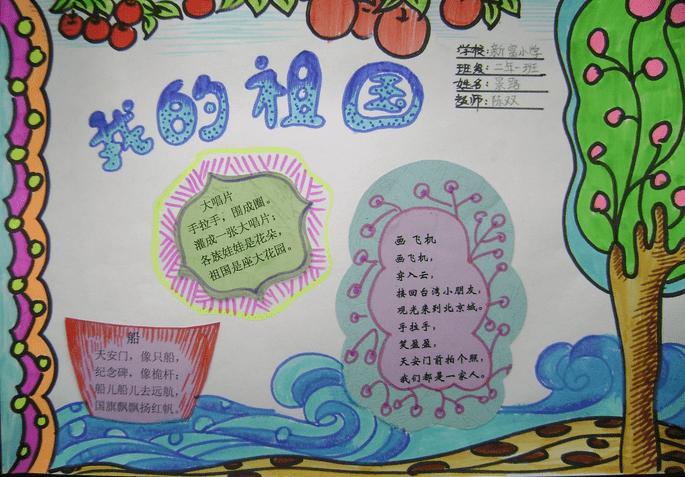 我的祖国
学校:新富小学
班级:二年一班
姓名:景璐
教师:陈双
大唱片
手拉手,围成圈。
灌成一张大唱片;
各族娃娃是花朵,
祖国是座大花园。
画飞机
画飞机,
穿入云,
接回台湾小朋友,
观光来到北京城。
手拉手,
笑盈盈,
天安门前拍个照,
我们都是一家人。
船
天安门,像只船,
纪念碑,像桅杆;
船儿船儿去远航,
国旗飘飘扬红帆。